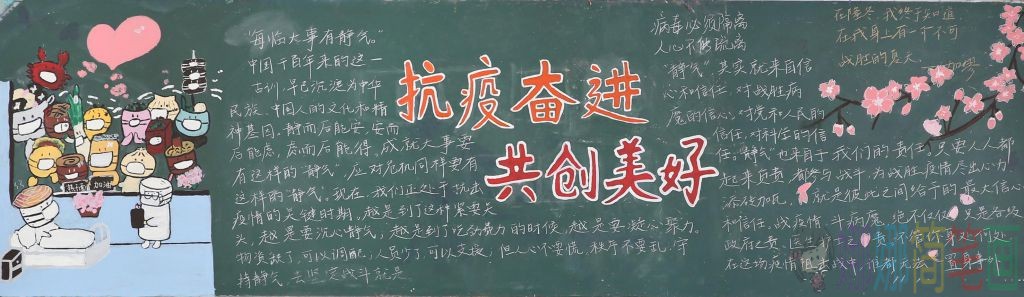 "每临大事有静气。"
中国千百年来的这一
古训，早已沉淀为中华
民族、中国人的文化和精
神基因。静而后能安，安而
后能虑，虑而后能得。成就大事要
有这样的"静气"。应对危机同样要有
这样的"静气"。现在，我们正处于抗击
疫情的关键时期。越是到了这种紧要关
头，越是要沉心静气，越是到了吃劲费力的时候，越是要凝心聚力。
物资短了，可以调配，人员少了，可以支援，但人心不要慌，秩序不要乱，守
持静气，去坚定战斗就是
热干面 加油
抗疫奋进
共创美好
病毒必须隔离
人心不能疏离
"静气"，其实就来自信
心和信任。对战胜病
魔的信心，对党和人民的
信任，对科学的信
任。"静气"也来自于我们的责任。只要人人都
起来负责，都参与战斗，为战胜疫情尽出心力、
添砖加瓦，就是彼此之间给予的最大信心
和信任。战疫情、斗病魔，绝不仅仅只是各级
政府之责、医生护士之责，不管你身处何处
在这场疫情阻击战中，谁都无法置身事外
在隆冬，我终于知道
在我身上有一个不可
战胜的夏天。
——加缪
简笔画